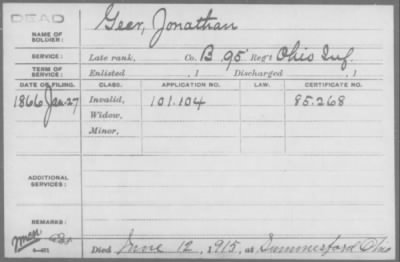 DEAD
NAME OF SOLDIER: Geer, Jonathan
SERVICE: Late rank, Co. B 95 Reg't Ohio Inf.
TERM OF SERVICE: Enlisted , 1 Discharged , 1
DATE OF FILING. CLASS. APPLICATION NO. LAW. CERTIFICATE NO.
1866 Jan-27 Invalid, 101.104 85.268
Widow,
Minor,
ADDITIONAL SERVICES:
REMARKS:
Died June 12, 1915, at Summerford Ohio